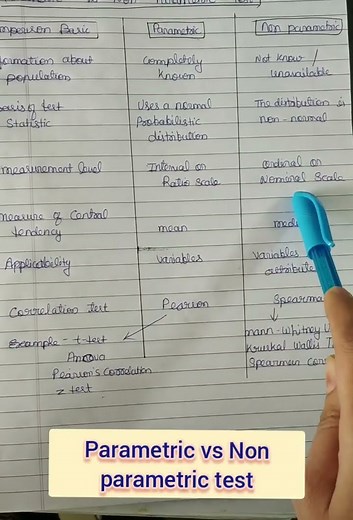 Parametric
Non parametric
population
Completely
Known
Not Know /
Unavailable
test
Statistic
Uses a normal
Probabilistic
distribution
The distribution is
non-normal
measurement level
Interval or
Ratio Scale
ordinal or
Nomenal Scale
tendency
mean
Applicability
Variables
Variables
attribute
Correlation Test
Pearson
Spearma
Example - t-test
Anova
Pearson's Correlation
z test
mann-Whitney U
Kruskal Wallis T
Spearman Corr
Parametric vs Non
parametric test